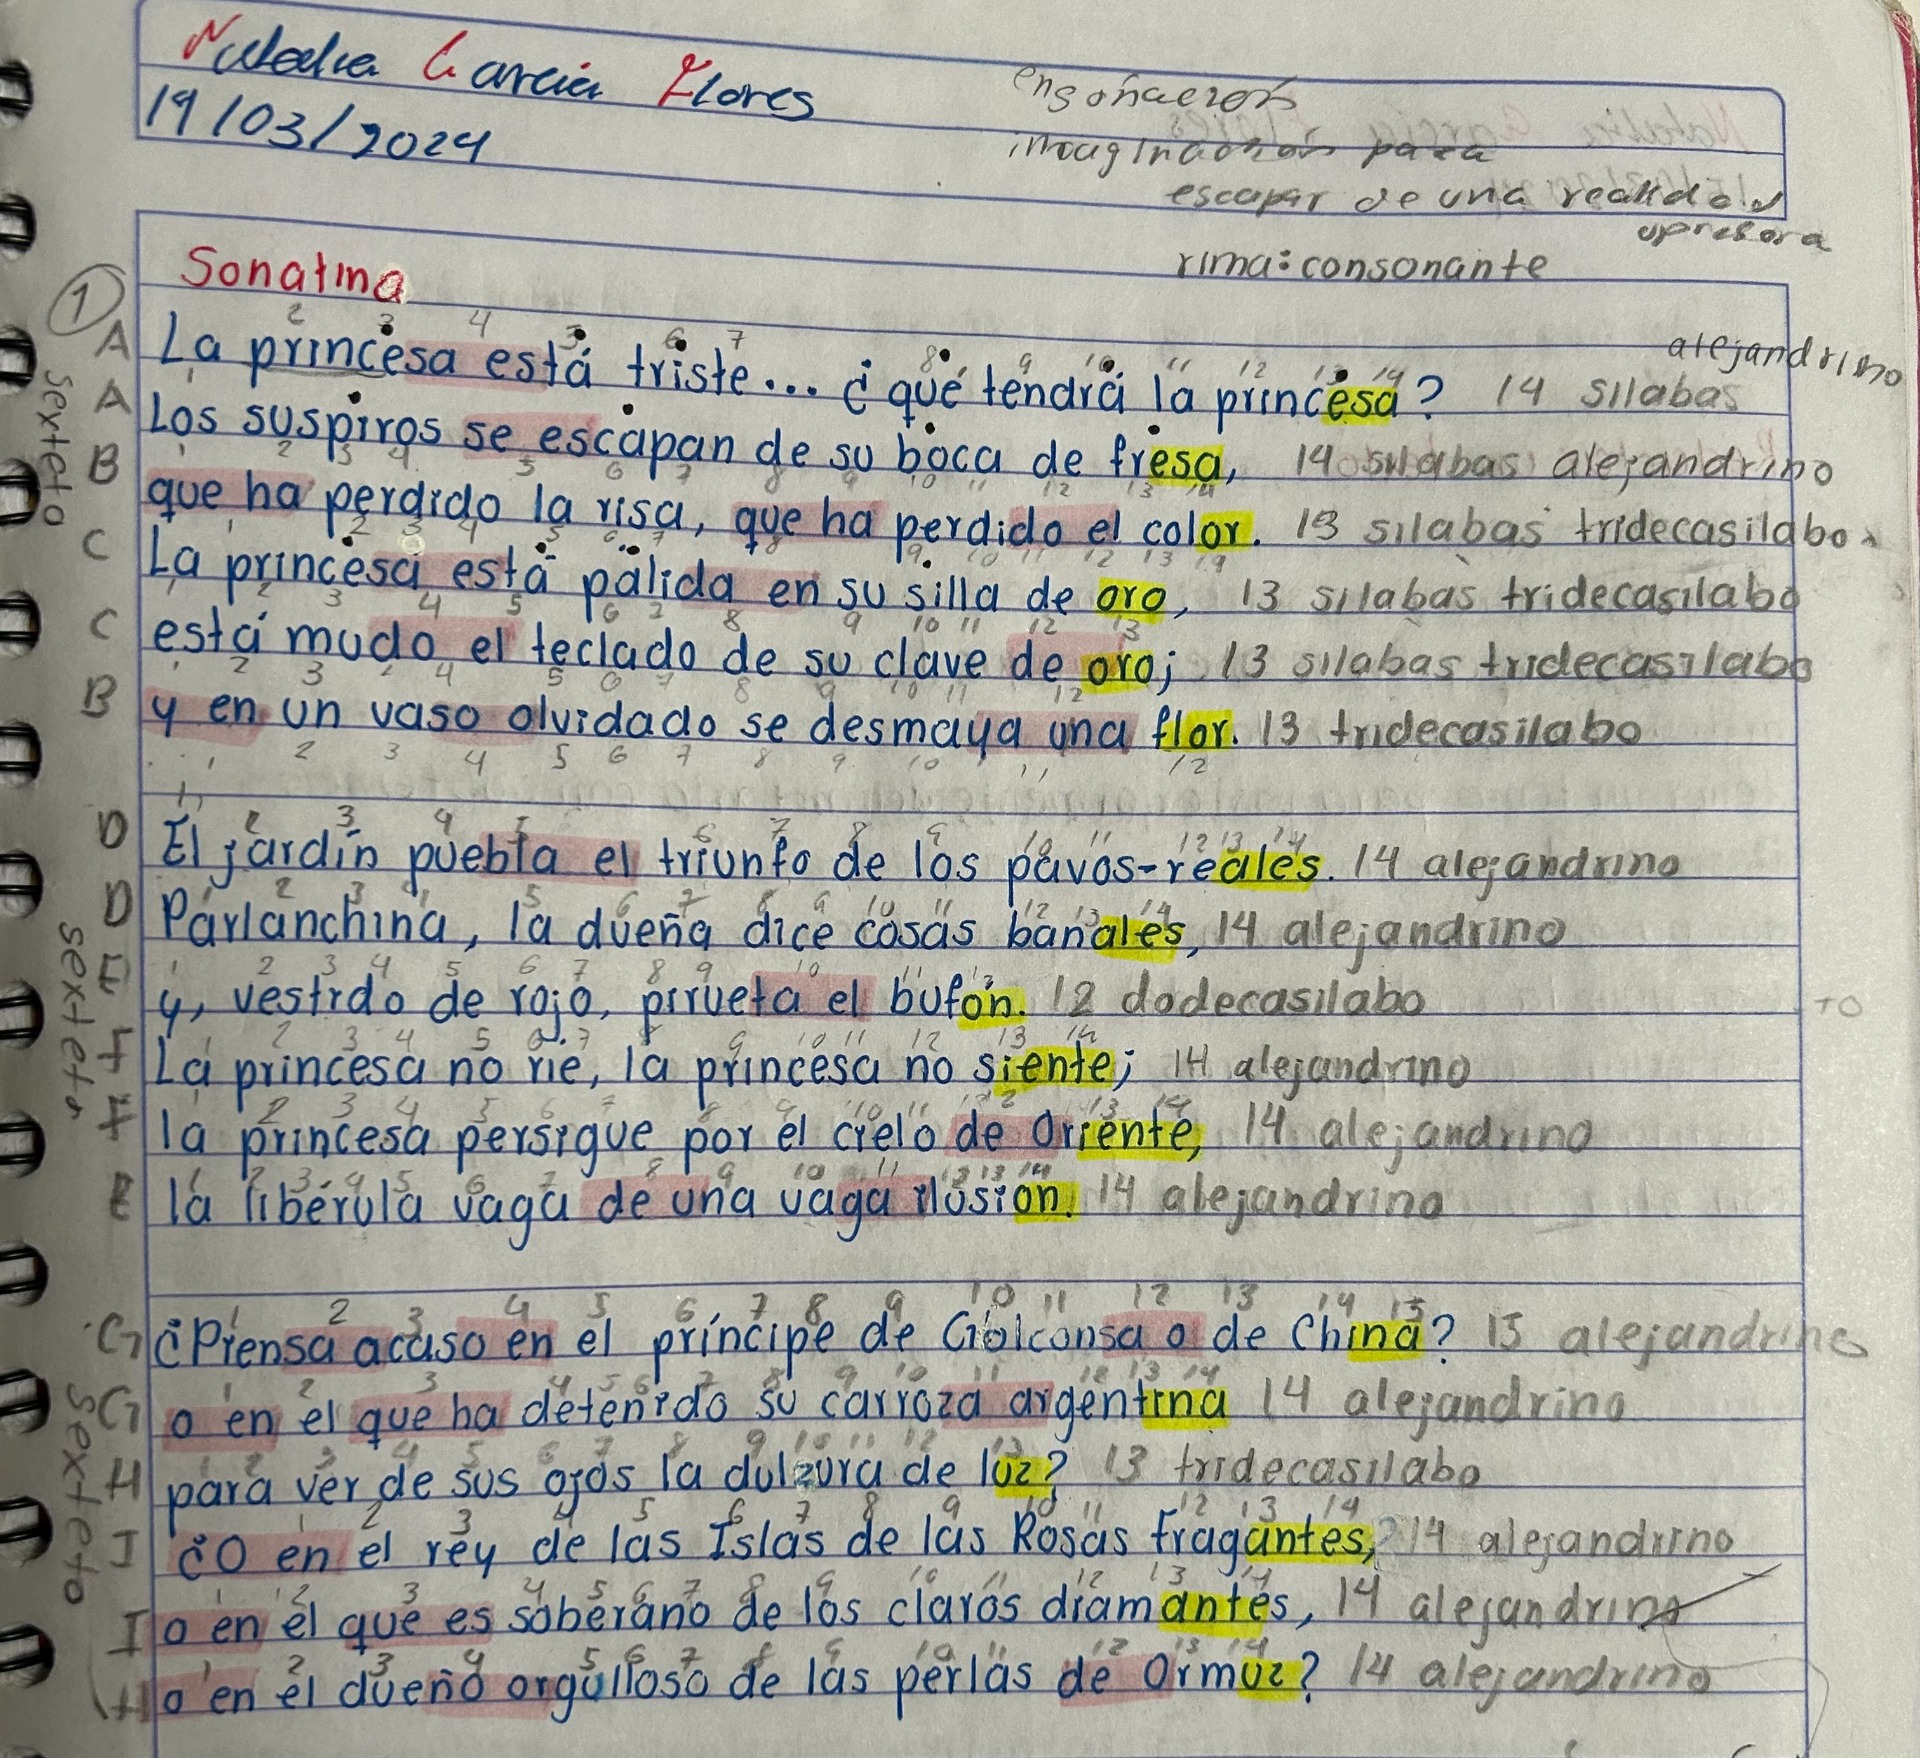 Natalia Garcia Flores
19/03/2024
ensoñación
imaginación para
escapar de una realidad
opresora
rima: consonante
Sonatina
1
sexteto
alejandrino
A La princesa está triste... ¿qué tendrá la princesa? 14 silabas
A Los suspiros se escapan de su boca de fresa, 14 silabas alejandrino
B que ha perdido la risa, que ha perdido el color. 13 silabas tridecasilabo
C La princesa está pálida en su silla de oro, 13 silabas tridecasilabo
C está mudo el teclado de su clave de oro; 13 silabas tridecasilabo
B y en un vaso olvidado se desmaya una flor. 13 tridecasilabo
sexteto
D El jardín puebla el triunfo de los pavos-reales. 14 alejandrino
D Parlanchina, la dueña dice cosas banales, 14 alejandrino
E y, vestido de rojo, pirueta el bufón. 12 dodecasilabo
F La princesa no rie, la princesa no siente; 14 alejandrino
F la princesa persigue por el cielo de Oriente, 14 alejandrino
E la libérula vaga de una vaga ilusion. 14 alejandrino
sexteto
G ¿Piensa acaso en el príncipe de Golconsa o de China? 15 alejandrino
G o en el que ha detenido su carroza argentina 14 alejandrino
H para ver de sus ojos la dulzura de luz? 13 tridecasilabo
I ¿O en el rey de las Islas de las Rosas fragantes, 14 alejandrino
I o en el que es soberano de los claros diamantes, 14 alejandrino
H o en el dueño orgulloso de las perlas de Ormuz? 14 alejandrino